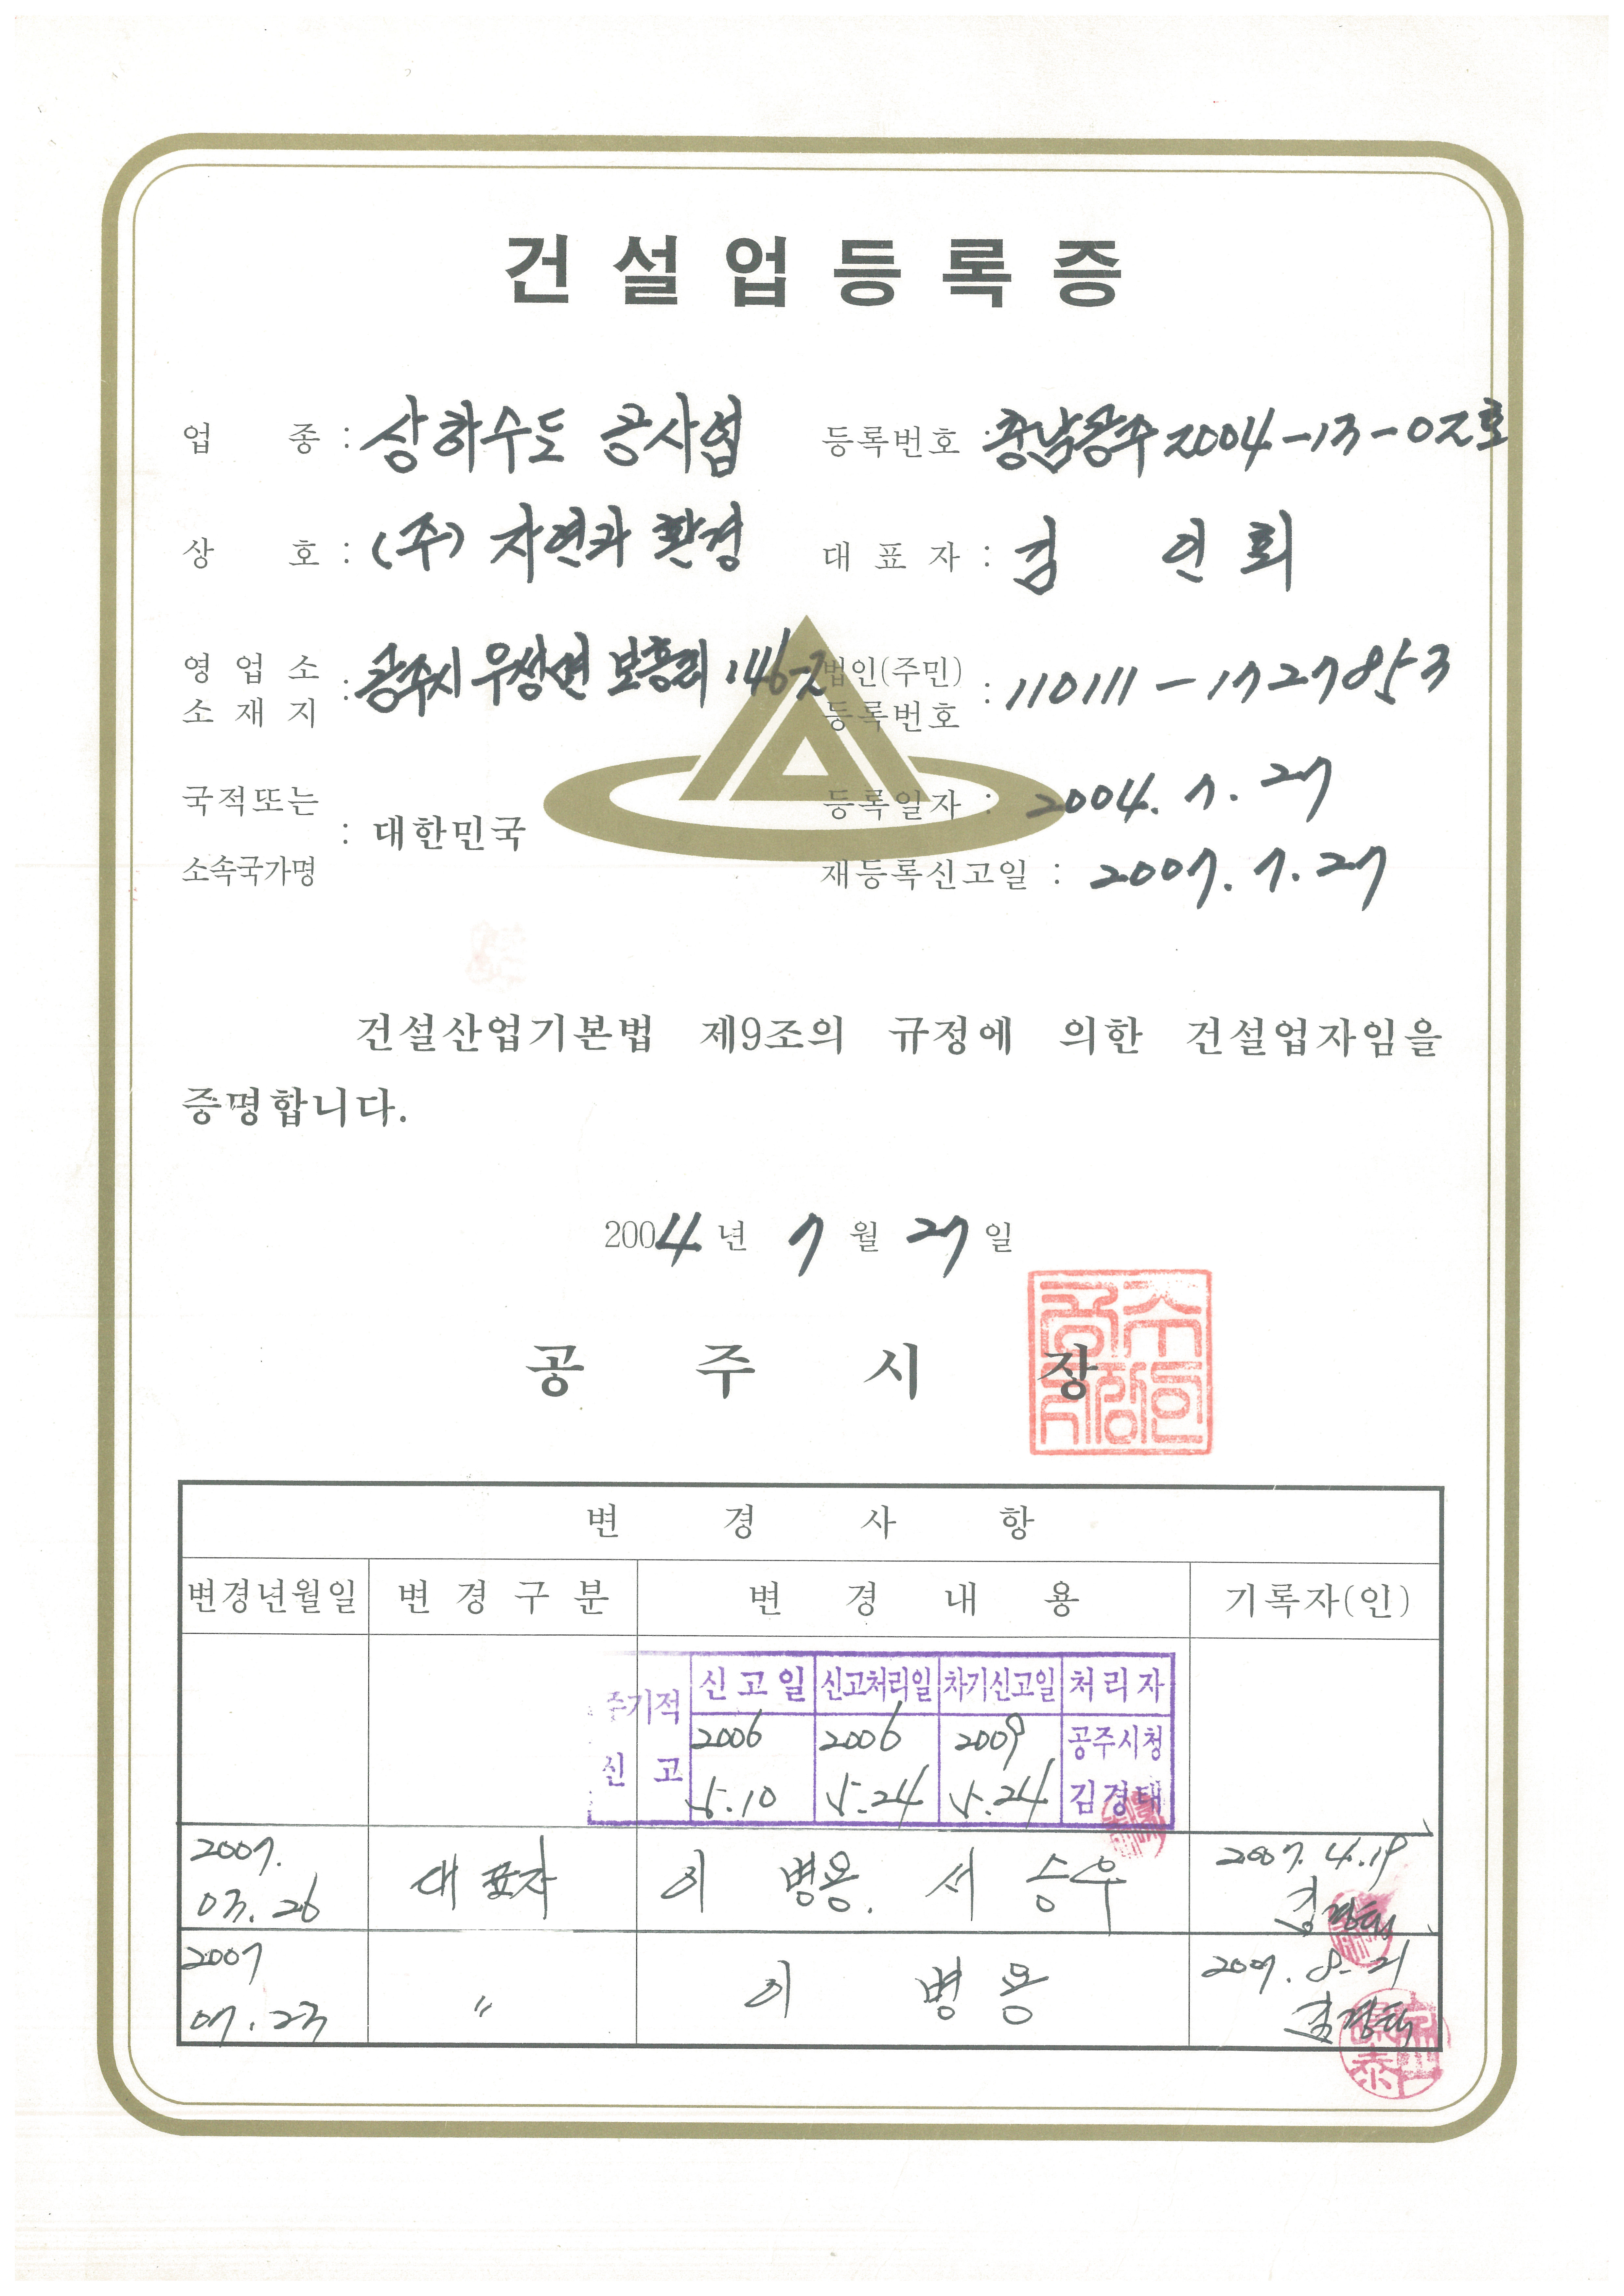 건설업등록증
업 종 : 상하수도 공사업 등록번호 : 충남공주 2004-13-02호
상 호 : (주) 자연과 환경 대표자 : 김 인 회
영업소 소재지 : 공주시 우성면 보흥리 146-2 법인(주민) 등록번호 : 110111-1727853
국적또는 소속국가명 : 대한민국 등록일자 : 2004. 7. 27
재등록신고일 : 2007. 7. 27
건설산업기본법 제9조의 규정에 의한 건설업자임을
증명합니다.
2004년 7월 27일
공 주 시 장
변 경 사 항
변경년월일 변경구분 변경내용 기록자(인)
주기적 신고 신고일 신고처리일 차기신고일 처리자
2006 2006 2009 공주시청
5.10 5.24 5.24 김경태
2007. 03. 26 대표자 이 병용. 서 승우 2007. 4. 19
2007 07. 23 〃 이 병용 2007. 8. 21